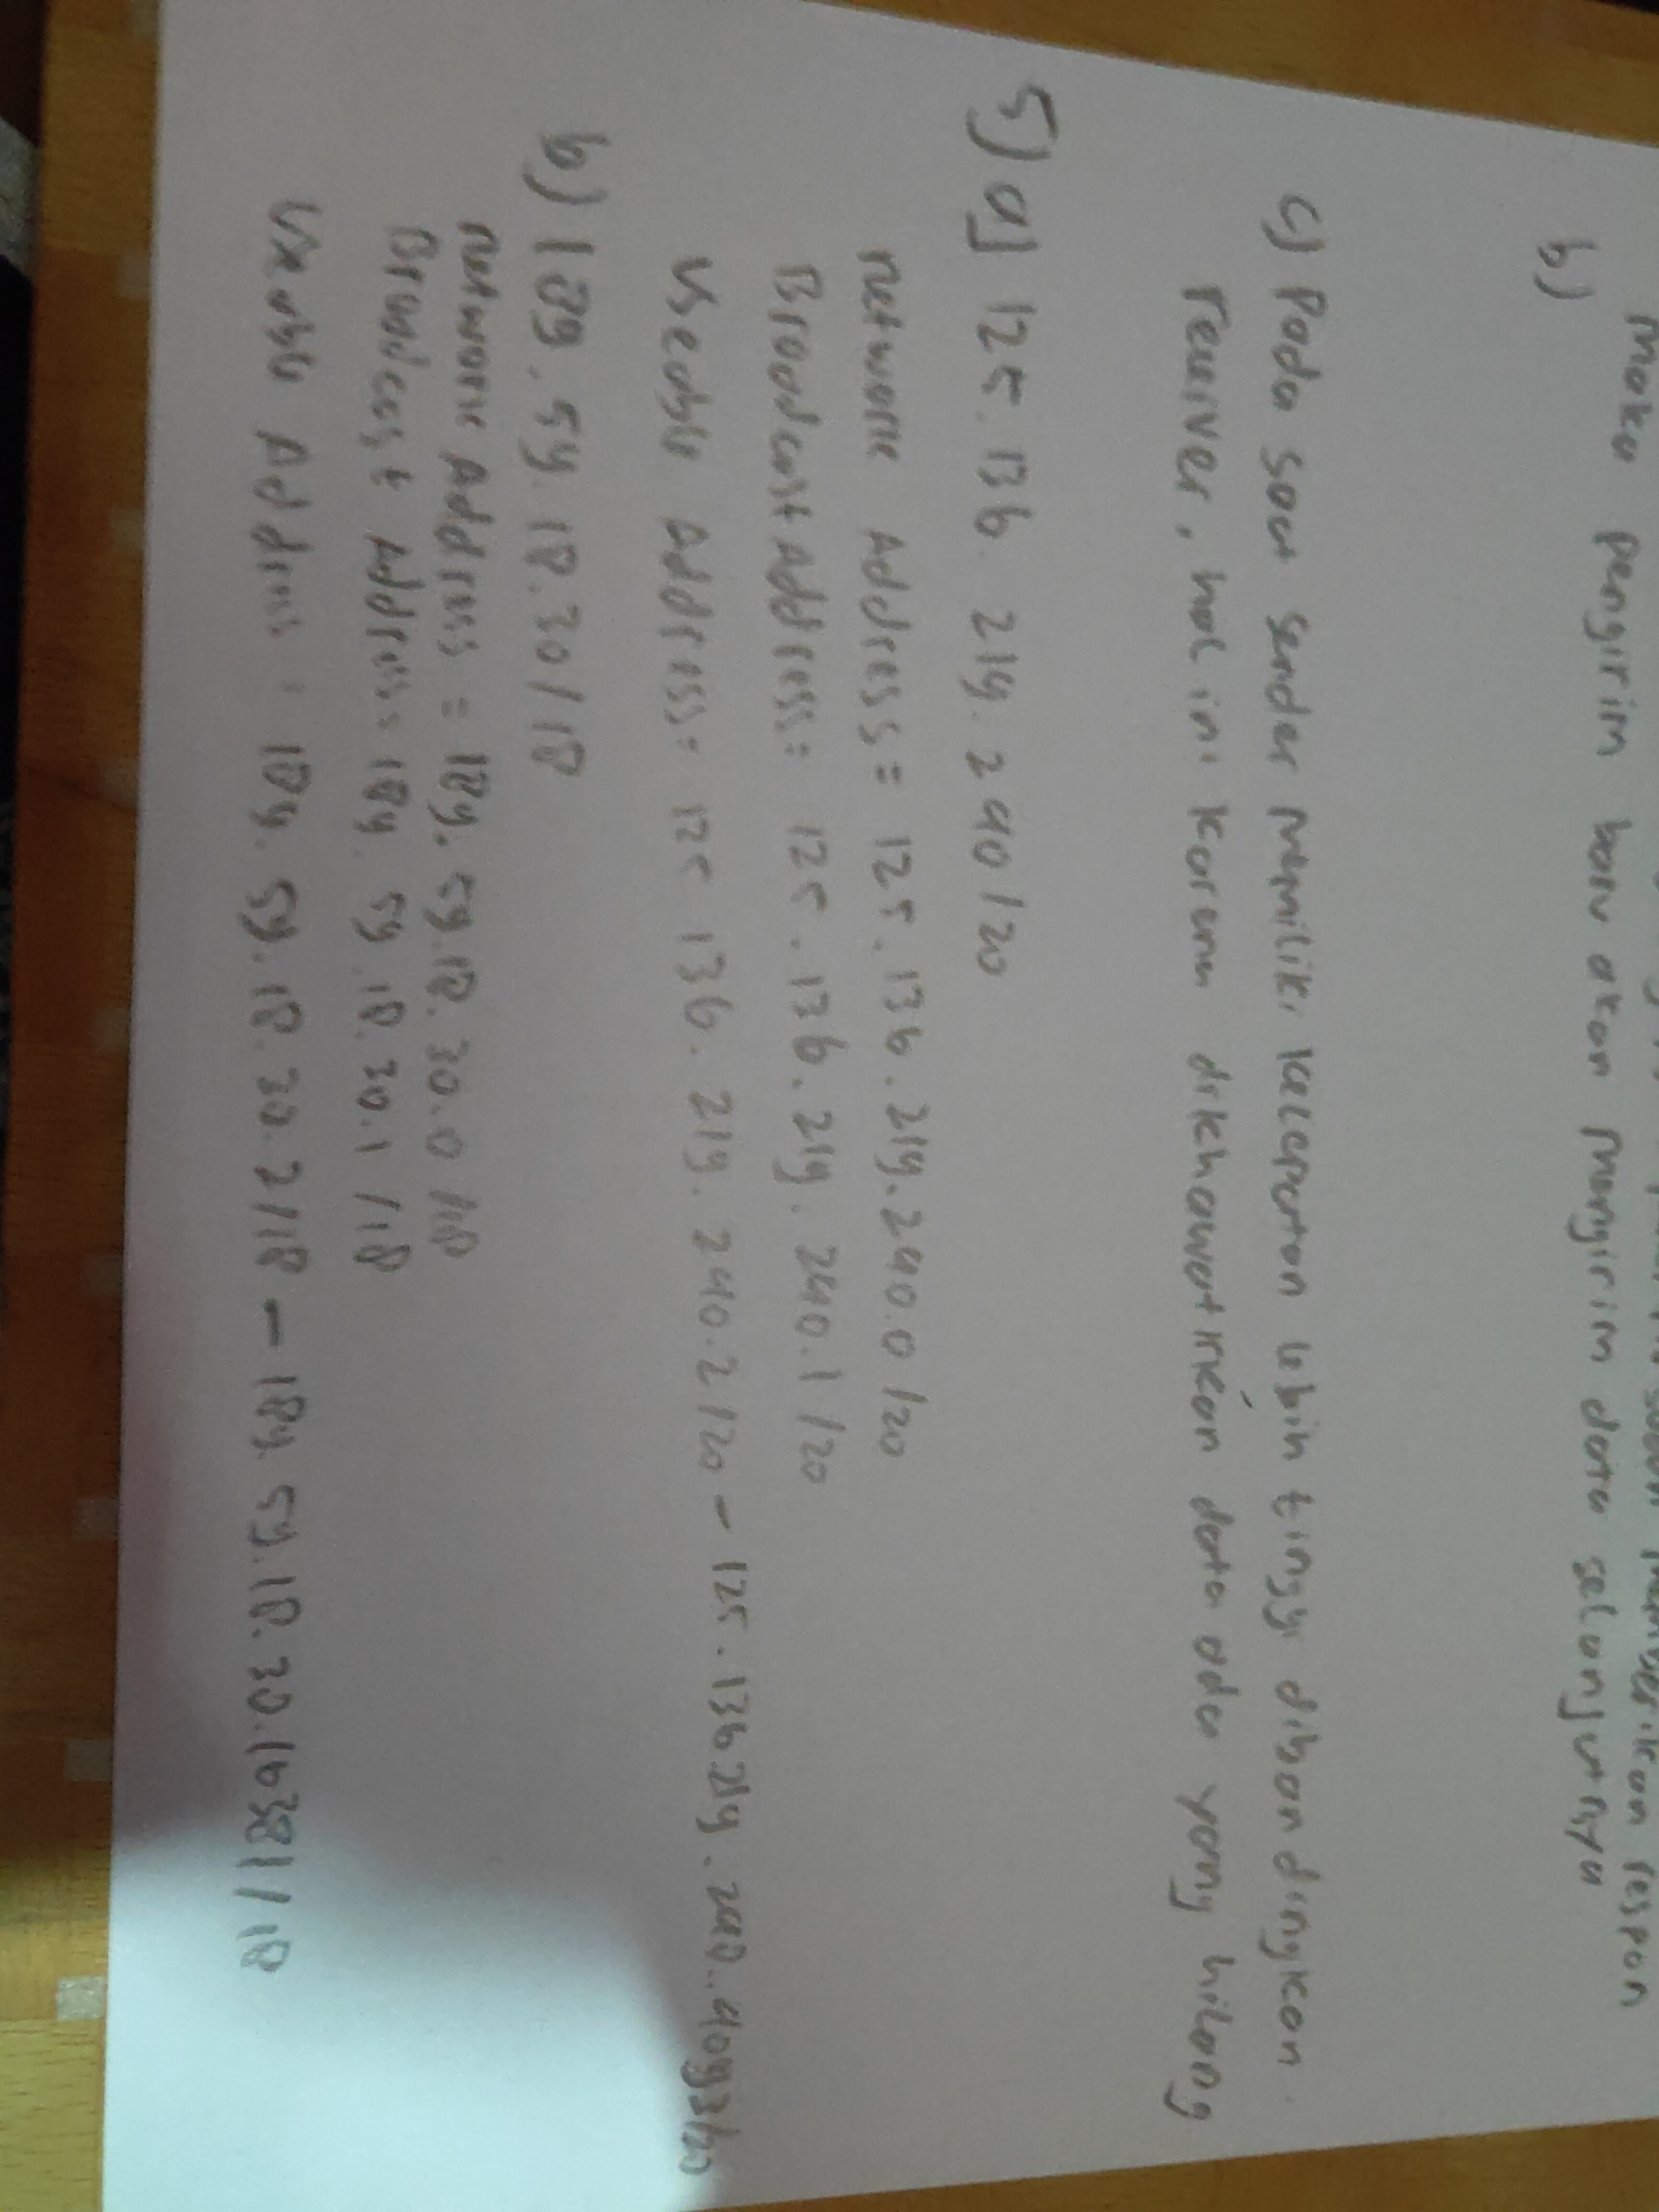 maka pengirim baru akan mengirim data selanjutnya
b)
c) Pada saat sender memiliki kecepatan lebih tinggi dibandingkan
receiver, hal ini karena dikhawatirkan data ada yang hilang
5) a) 125.136.219.240/20
network Address = 125.136.219.240.0/20
Broadcast Address = 125.136.219.240.1/20
Useable Address = 125 136.219.240.2/20 - 125.136.219.240.4093/20
b) 189.59.18.30/18
network Address = 189.59.18.30.0/18
Broadcast Address = 189.59.18.30.1/18
Useable Address = 189.59.18.30.2/18 - 189.59.18.30.16381/18